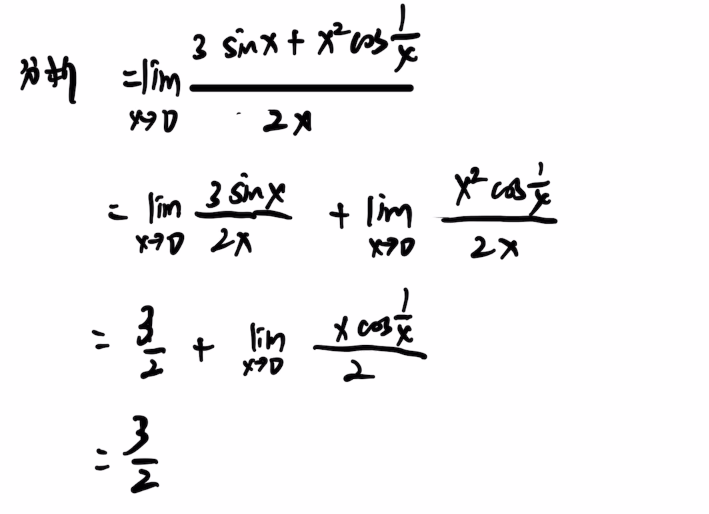 分析 =lim x→0 (3 sinx + x² cos 1/x) / 2x
= lim x→0 3 sinx / 2x + lim x→0 x² cos 1/x / 2x
= 3/2 + lim x→0 x cos 1/x / 2
= 3/2